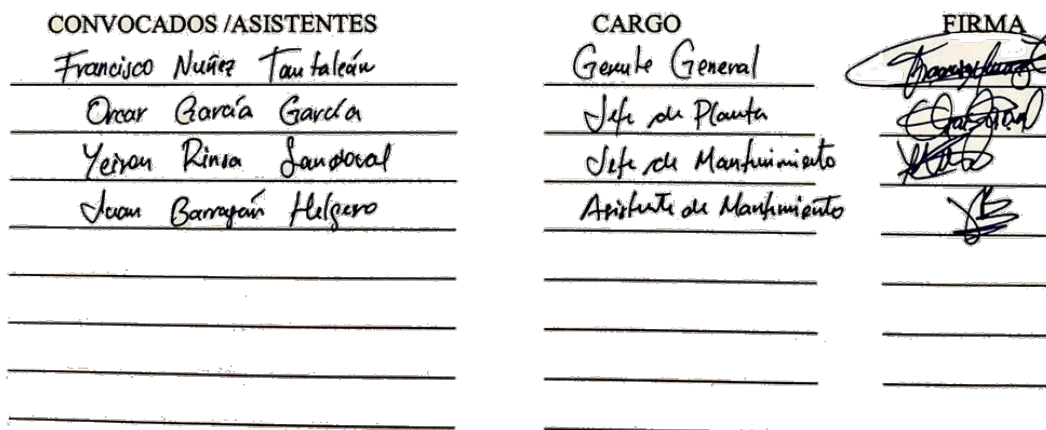 CONVOCADOS /ASISTENTES CARGO FIRMA
Francisco Nuñez Tantaleán Gerente General
Oscar García García Jefe de Planta
Yeison Sandoval Jefe de Mantenimiento
Juan Barragán Asistente de Mantenimiento